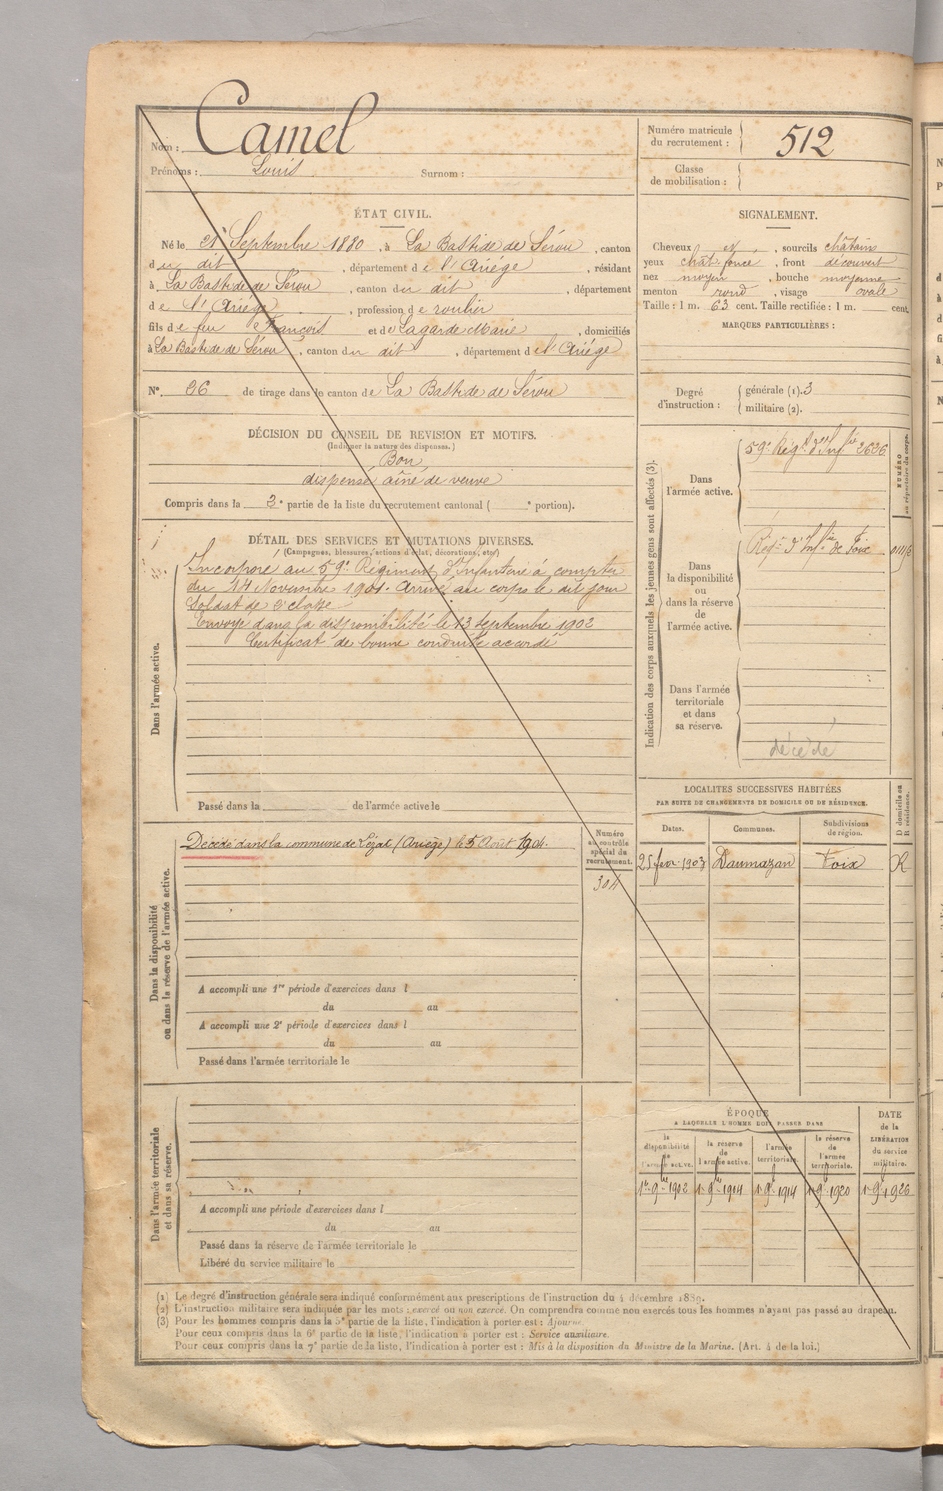 Nom : Camel
Prénoms : Louis Surnom :
Numéro matricule
du recrutement : 512
Classe
de mobilisation :
ÉTAT CIVIL.
Né le 21 Septembre 1880, à La Bastide de Sérou, canton
du dit, département de l'Ariége, résidant
à La Bastide de Sérou, canton du dit, département
de l'Ariége, profession de roulier
fils de feu François et de Lagarde Marie, domiciliés
à La Bastide de Sérou, canton du dit, département de l'Ariége
N° 26 de tirage dans le canton de La Bastide de Sérou
DÉCISION DU CONSEIL DE REVISION ET MOTIFS.
(Indiquer la nature des dispenses.)
Bon
dispensé, aîné de veuve
Compris dans la 3e partie de la liste du recrutement cantonal ( e portion).
SIGNALEMENT.
Cheveux et, sourcils châtains
yeux chât. foncé, front découvert
nez moyen, bouche moyenne
menton rond, visage ovale
Taille : 1 m. 63 cent. Taille rectifiée : 1 m. cent.
MARQUES PARTICULIÈRES :
Degré
d'instruction :
générale (1). 3
militaire (2).
DÉTAIL DES SERVICES ET MUTATIONS DIVERSES.
(Campagnes, blessures, actions d'éclat, décorations, etc.)
Dans l'armée active.
Incorporé au 59e Régiment d'Infanterie à compter
du 14 Novembre 1901. Arrivé au corps le dit jour
Soldat de 2e classe
Envoyé dans la disponibilité le 13 septembre 1902
Certificat de bonne conduite accordé
Passé dans la de l'armée active le
Indication des corps auxquels les jeunes gens sont affectés (3).
NUMÉRO
au répertoire du corps.
Dans
l'armée active.
59e Régt d'Infie 2626
Dans
la disponibilité
ou
dans la réserve
de
l'armée active.
Régt d'Infie de Foix
Dans l'armée
territoriale
et dans
sa réserve.
décédé
Dans la disponibilité
ou dans la réserve de l'armée active.
Décédé dans la commune de Lézat (Ariège) le 5 Août 1904.
Numéro
au contrôle
spécial du
recrutement.
304
A accompli une 1re période d'exercices dans l
du au
A accompli une 2e période d'exercices dans l
du au
Passé dans l'armée territoriale le
LOCALITÉS SUCCESSIVES HABITÉES
PAR SUITE DE CHANGEMENTS DE DOMICILE OU DE RÉSIDENCE.
Dates. Communes. Subdivisions
de région. D domicile ou
R résidence.
25 févr. 1903 Daumazan Foix R
Dans l'armée territoriale
et dans sa réserve.
A accompli une période d'exercices dans l
du au
Passé dans la réserve de l'armée territoriale le
Libéré du service militaire le
ÉPOQUE
A LAQUELLE L'HOMME DOIT PASSER DANS
la
disponibilité
de
l'armée active.
la réserve
de
l'armée active.
l'armée
territoriale.
la réserve
de
l'armée
territoriale.
DATE
de la
LIBÉRATION
du service
militaire.
1er 9bre 1902 1er 9bre 1904 1er 9bre 1914 1er 9bre 1920 1er 9bre 1926
(1) Le degré d'instruction générale sera indiqué conformément aux prescriptions de l'instruction du 4 décembre 1889.
(2) L'instruction militaire sera indiquée par les mots : exercé ou non exercé. On comprendra comme non exercés tous les hommes n'ayant pas passé au drapeau.
(3) Pour les hommes compris dans la 5e partie de la liste, l'indication à porter est : Ajourné.
Pour ceux compris dans la 6e partie de la liste, l'indication à porter est : Service auxiliaire.
Pour ceux compris dans la 7e partie de la liste, l'indication à porter est : Mis à la disposition du Ministre de la Marine. (Art. 4 de la loi.)